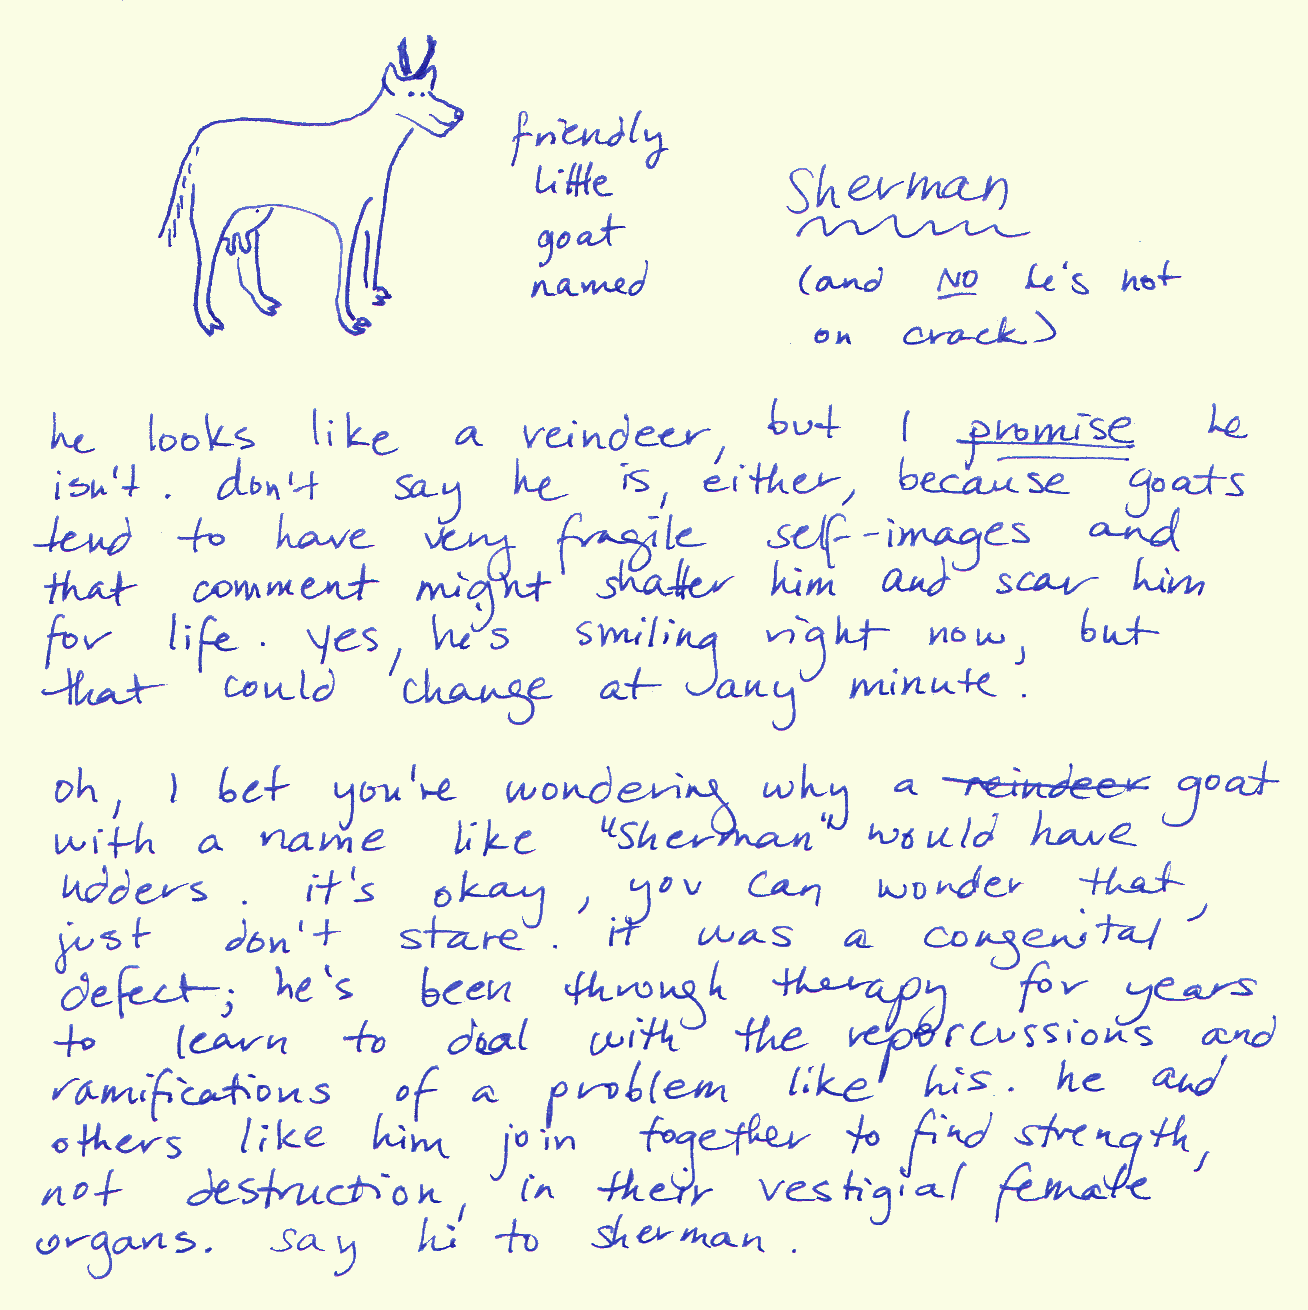 friendly
little
goat
named
Sherman
(and NO he's not
on crack)
he looks like a reindeer, but I promise he
isn't. don't say he is, either, because goats
tend to have very fragile self-images and
that comment might shatter him and scar him
for life. yes, he's smiling right now, but
that could change at any minute.
oh, I bet you're wondering why a reindeer goat
with a name like "Sherman" would have
udders. it's okay, you can wonder that,
just don't stare. it was a congenital
defect; he's been through therapy for years
to learn to deal with the repercussions and
ramifications of a problem like his. he and
others like him join together to find strength,
not destruction, in their vestigial female
organs. say hi to sherman.